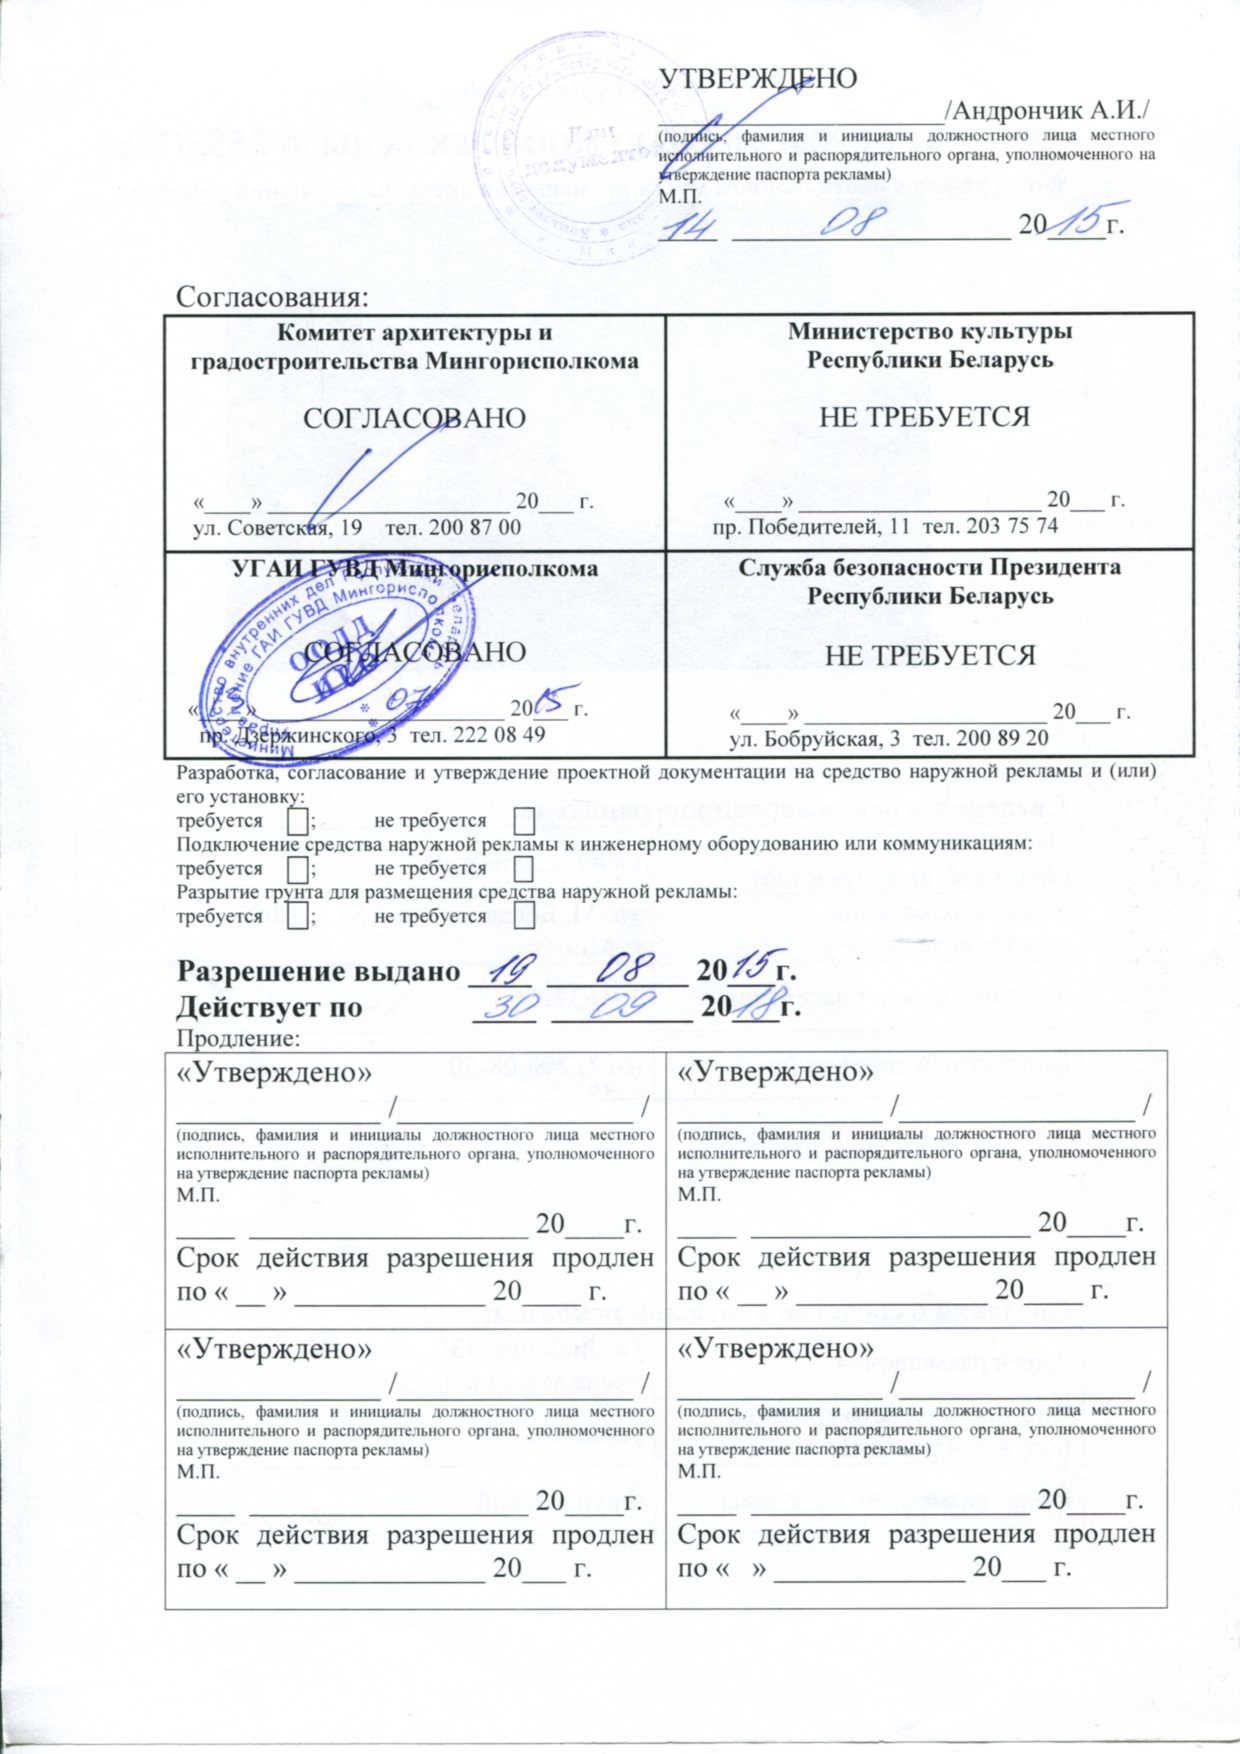 УТВЕРЖДЕНО
____________________/Андрончик А.И./
(подпись, фамилия и инициалы должностного лица местного
исполнительного и распорядительного органа, уполномоченного на
утверждение паспорта рекламы)
М.П.
14 08 2015г.
Согласования:
Комитет архитектуры и
градостроительства Мингорисполкома
СОГЛАСОВАНО
«____» ____________________ 20___ г.
ул. Советская, 19 тел. 200 87 00
Министерство культуры
Республики Беларусь
НЕ ТРЕБУЕТСЯ
«____» ____________________ 20___ г.
пр. Победителей, 11 тел. 203 75 74
УГАИ ГУВД Мингорисполкома
СОГЛАСОВАНО
Министерство внутренних дел Республики Беларусь
Управление ГАИ ГУВД Мингорисполкома
ООДД
« » 07 2015 г.
пр. Дзержинского, 3 тел. 222 08 49
Служба безопасности Президента
Республики Беларусь
НЕ ТРЕБУЕТСЯ
«____» ____________________ 20___ г.
ул. Бобруйская, 3 тел. 200 89 20
Разработка, согласование и утверждение проектной документации на средство наружной рекламы и (или)
его установку:
требуется ☐; не требуется ☐
Подключение средства наружной рекламы к инженерному оборудованию или коммуникациям:
требуется ☐; не требуется ☐
Разрытие грунта для размещения средства наружной рекламы:
требуется ☐; не требуется ☐
Разрешение выдано 19 08 2015г.
Действует по 30 09 2018г.
Продление:
«Утверждено»
______________ /________________ /
(подпись, фамилия и инициалы должностного лица местного
исполнительного и распорядительного органа, уполномоченного
на утверждение паспорта рекламы)
М.П.
____ ___________________ 20____г.
Срок действия разрешения продлен
по « __ » _____________ 20____ г.
«Утверждено»
______________ /________________ /
(подпись, фамилия и инициалы должностного лица местного
исполнительного и распорядительного органа, уполномоченного
на утверждение паспорта рекламы)
М.П.
____ ___________________ 20____г.
Срок действия разрешения продлен
по « __ » ______________20____ г.
«Утверждено»
______________ /________________ /
(подпись, фамилия и инициалы должностного лица местного
исполнительного и распорядительного органа, уполномоченного
на утверждение паспорта рекламы)
М.П.
____ ___________________ 20____г.
Срок действия разрешения продлен
по « __ » _____________ 20___ г.
«Утверждено»
______________ /________________ /
(подпись, фамилия и инициалы должностного лица местного
исполнительного и распорядительного органа, уполномоченного
на утверждение паспорта рекламы)
М.П.
____ ___________________ 20____г.
Срок действия разрешения продлен
по « » _____________ 20___ г.